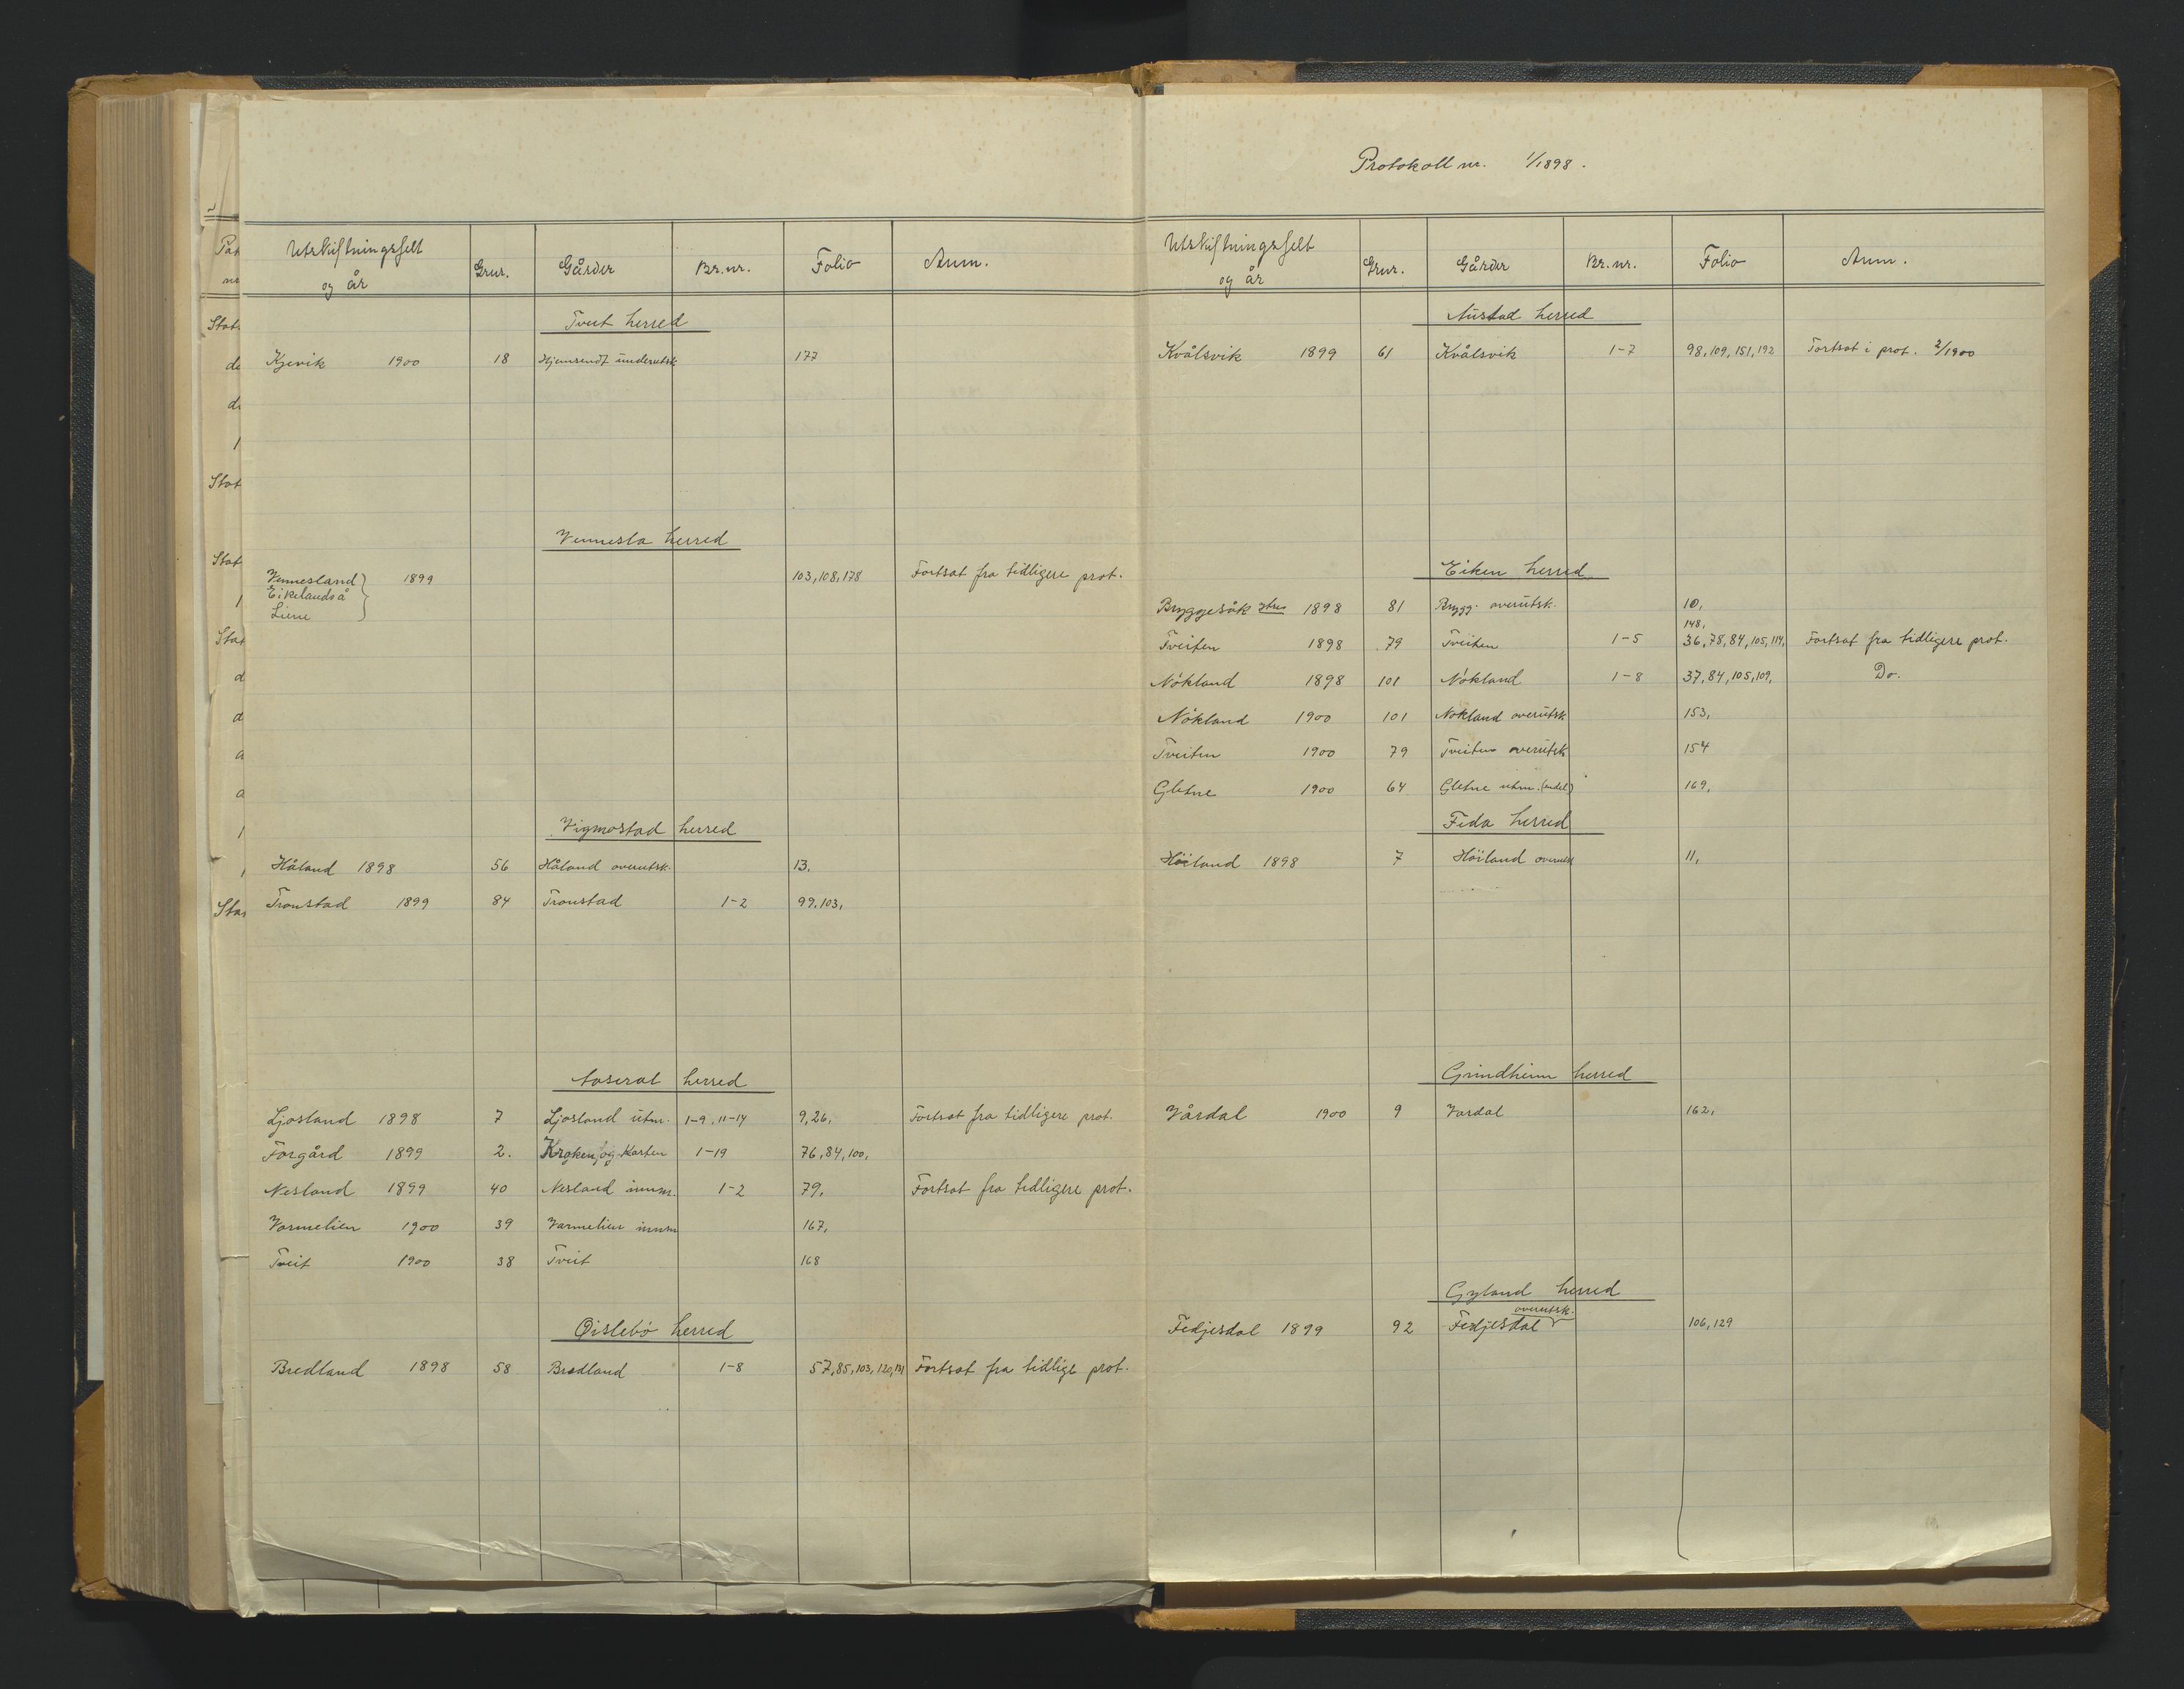 Utskiftningsfelt og år | Grnr. | Gårder | Br.nr. | Folio | Anm.
Tveit herred
Kjevik 1900 | 18 | Hjemsendt underutsk. | | 177
Vennesla herred
Vennesland } 1899 | | | | 103, 108, 178 | Fortsat fra tidligere prot.
Eikelandså
Liene
Vigmostad herred
Håland 1898 | 56 | Håland overutsk. | | 13.
Tronstad 1899 | 84 | Tronstad | 1-2 | 99, 103,
Aaseral herred
Ljosland 1898 | 7 | Ljosland utm. | 1-9, 11-14 | 9, 26, | Fortsat fra tidligere prot.
Forgård 1899 | 2. | Kroken og Karten | 1-19 | 76, 84, 100,
Nesland 1899 | 40 | Nesland innm. | 1-2 | 79, | Fortsat fra tidligere prot.
Varmelien 1900 | 39 | Varmelien innm | | 167,
Tveit 1900 | 38 | Tveit | | 168
Øislebö herred
Bredland 1898 | 58 | Bredland | 1-8 | 57, 85, 103, 120, 121 | Fortsat fra tidlige prot.
Protokoll nr. 1/1898.
Utskiftningsfelt og år | Grnr. | Gårder | Br.nr. | Folio | Anm.
Austad herred
Kvålsvik 1899 | 61 | Kvålsvik | 1-7 | 98, 109, 151, 192 | Fortsat i prot. 2/1900
Eiken herred
Bryggesåk ytre 1898 | 81 | Brygg. overutsk. | | 10,
148,
Tveiten 1898 | 79 | Tveiten | 1-5 | 36, 78, 84, 105, 114, | Fortsat fra tidligere prot.
Nökland 1898 | 101 | Nökland | 1-8 | 37, 84, 105, 109, | Do.
Nökland 1900 | 101 | Nökland overutsk | | 153,
Tveiten 1900 | 79 | Tveiten overutsk | | 154
Gletne 1900 | 64 | Gletne utm. (andel) | | 169,
Feda herred
Höiland 1898 | 7 | Höiland overutsk | | 11,
Grindheim herred
Vårdal 1900 | 9 | Vårdal | | 162,
Gyland herred
overutsk.
Fedjesdal 1899 | 92 | Fedjesdal | | 106, 129